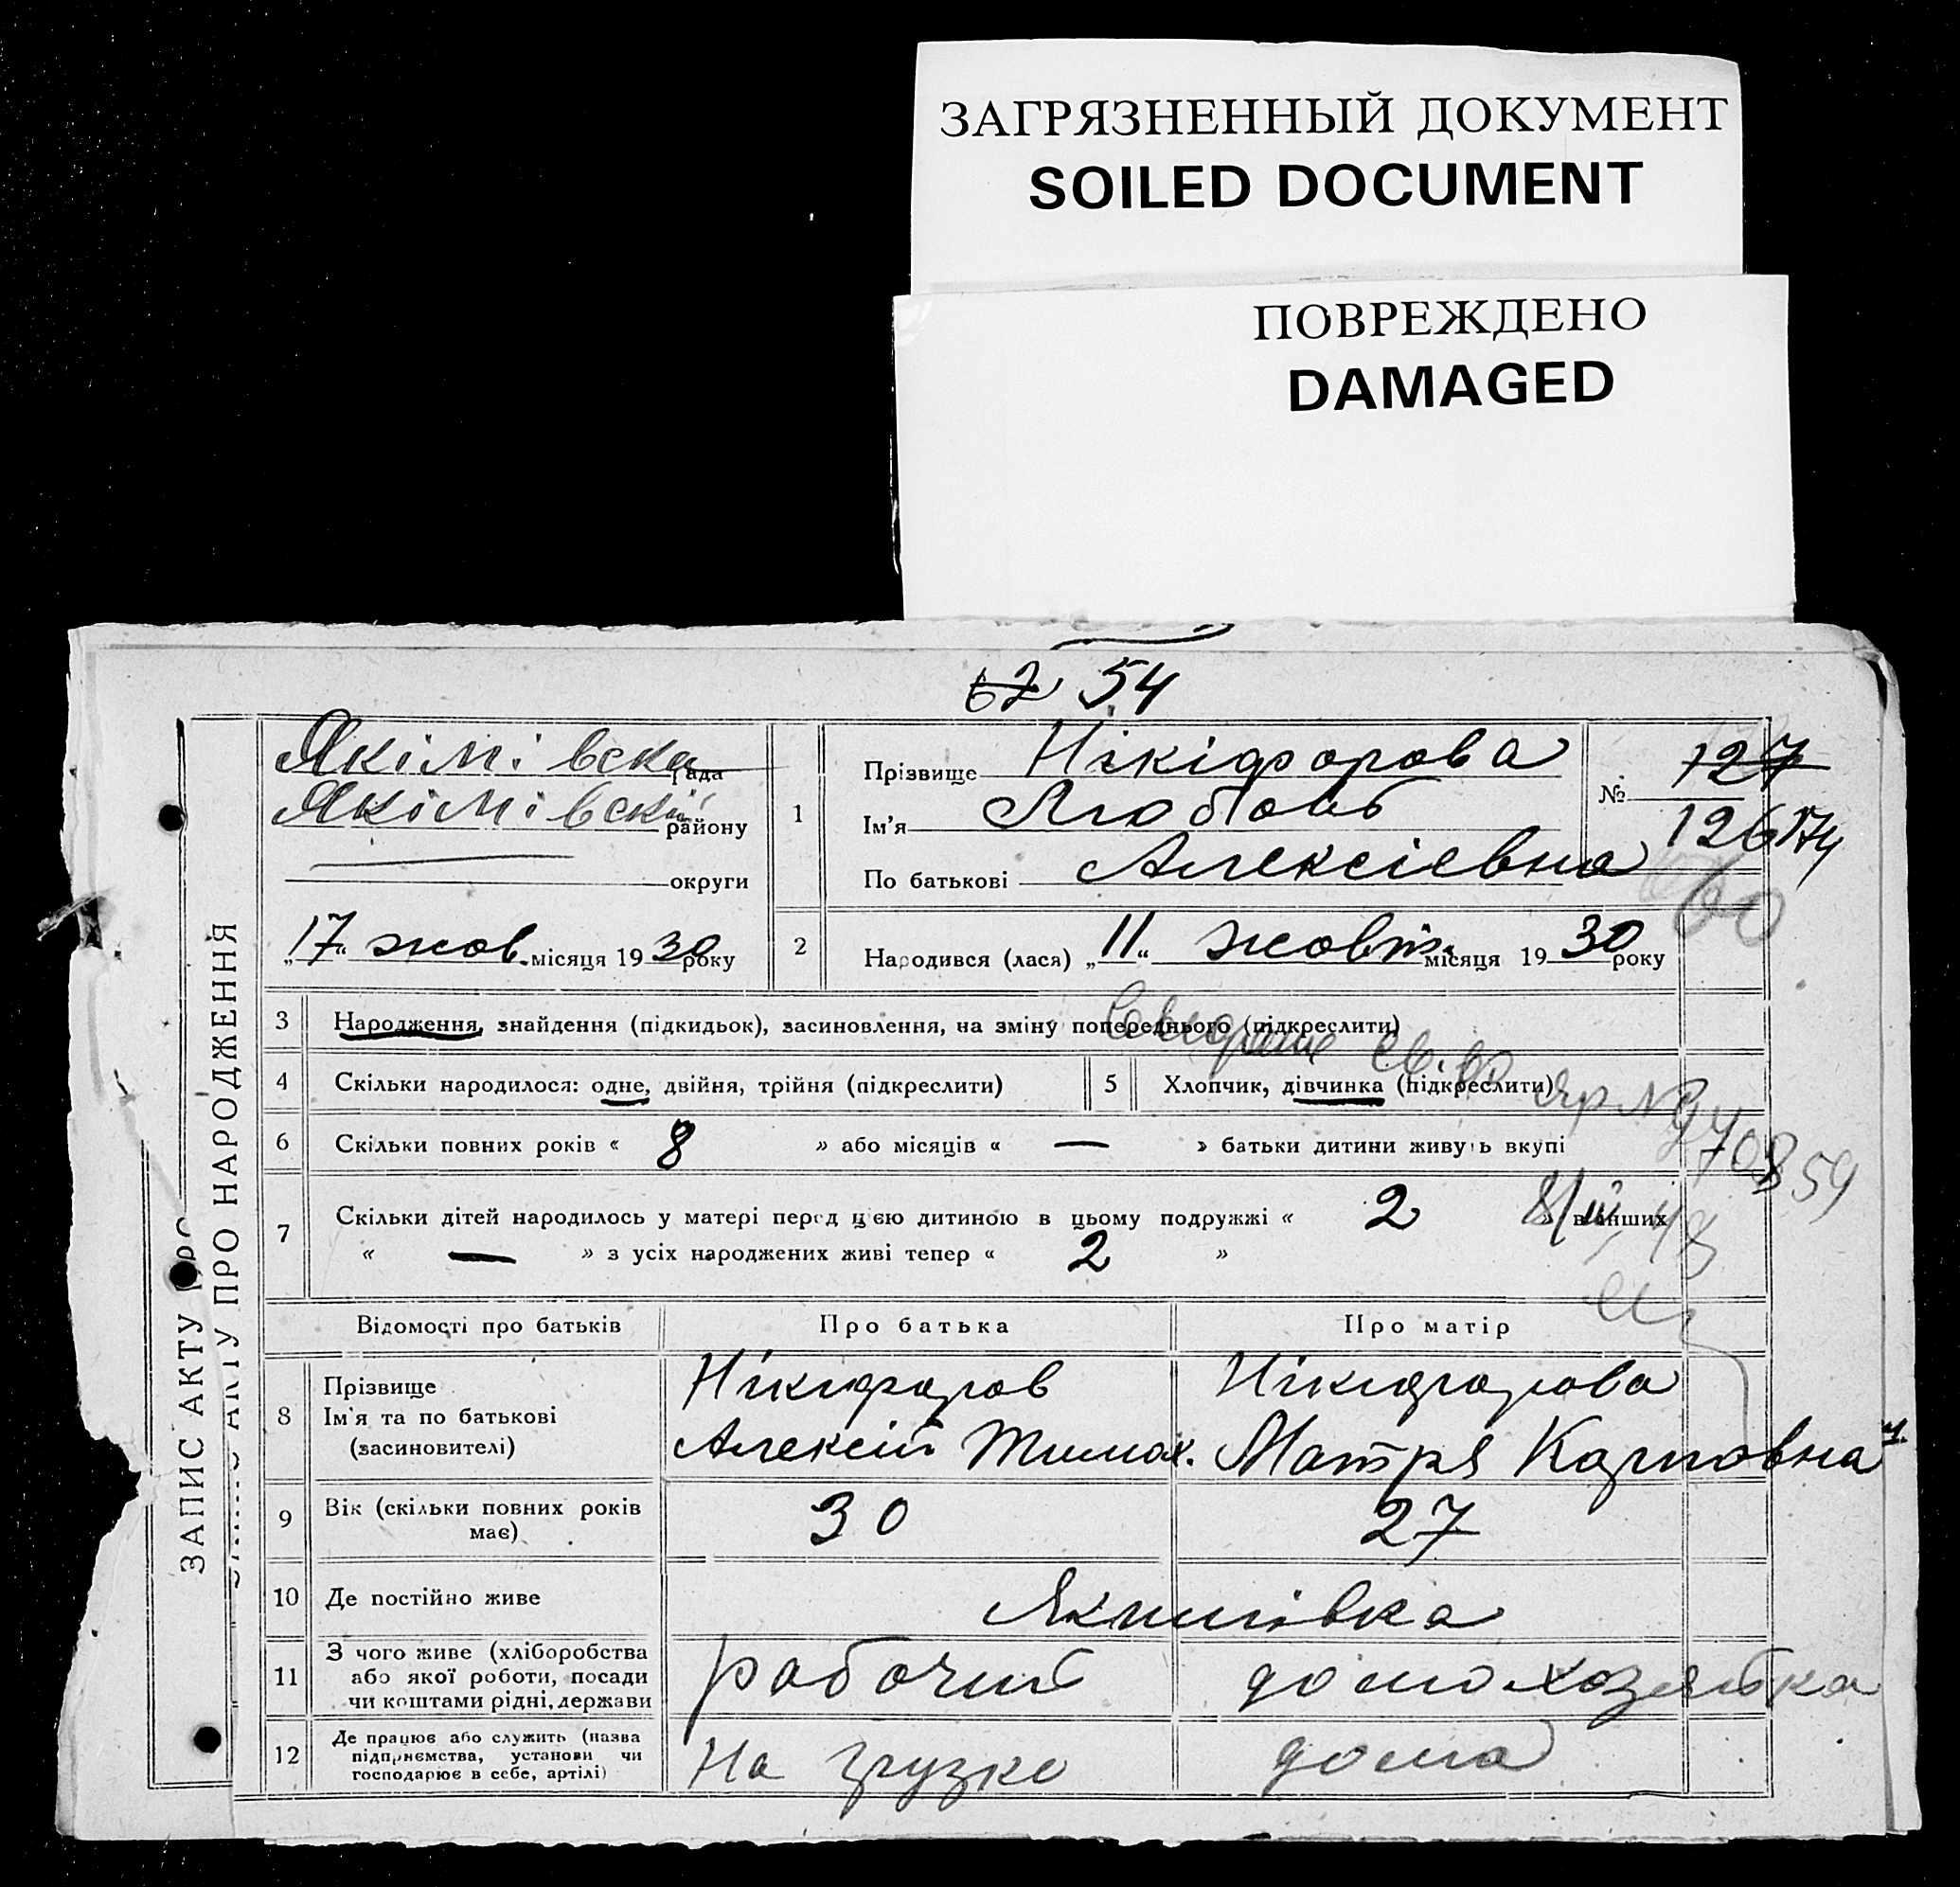 ЗАГРЯЗНЕННЫЙ ДОКУМЕНТ
SOILED DOCUMENT
ПОВРЕЖДЕНО
DAMAGED
67 54
ЗАПИС АКТУ ПРО
АКТУ ПРО НАРОДЖЕННЯ
Якімівска рада
Якімівскій району
округи
„17“ жов. місяця 1930 року
1
Прізвище Нікіфорова
Ім’я Любовь
По батькові Алексієвна
№ 127
126
2
Народився (лася) „11“ жовт. місяця 1930 року
3 Народження, знайдення (підкидьок), засиновлення, на зміну попереднього (підкреслити)
4 Скільки народилося: одне, двійня, трійня (підкреслити)
5 Хлопчик, дівчинка (підкреслити)
св.во
яр № 970859
6 Скільки повних років « 8 » або місяців « — » батьки дитини живуть вкупі
7 Скільки дітей народилось у матері перед цією дитиною в цьому подружжі « 2 » в инших
« — » з усіх народжених живі тепер « 2 »
Відомості про батьків Про батька Про матір
8 Прізвище
Ім’я та по батькові
(засиновителі)
Нікифоров
Алексій Тимох.
Нікифорова
Матря Карповна
9 Вік (скільки повних років має) 30 27
10 Де постійно живе Якимівка
11 З чого живе (хліборобства
або якої роботи, посади
чи коштами рідні, держави
рабочий домохозяйка
12 Де працює або служить (назва
підприємства, установи чи
господарює в себе, артілі)
На грузке дома